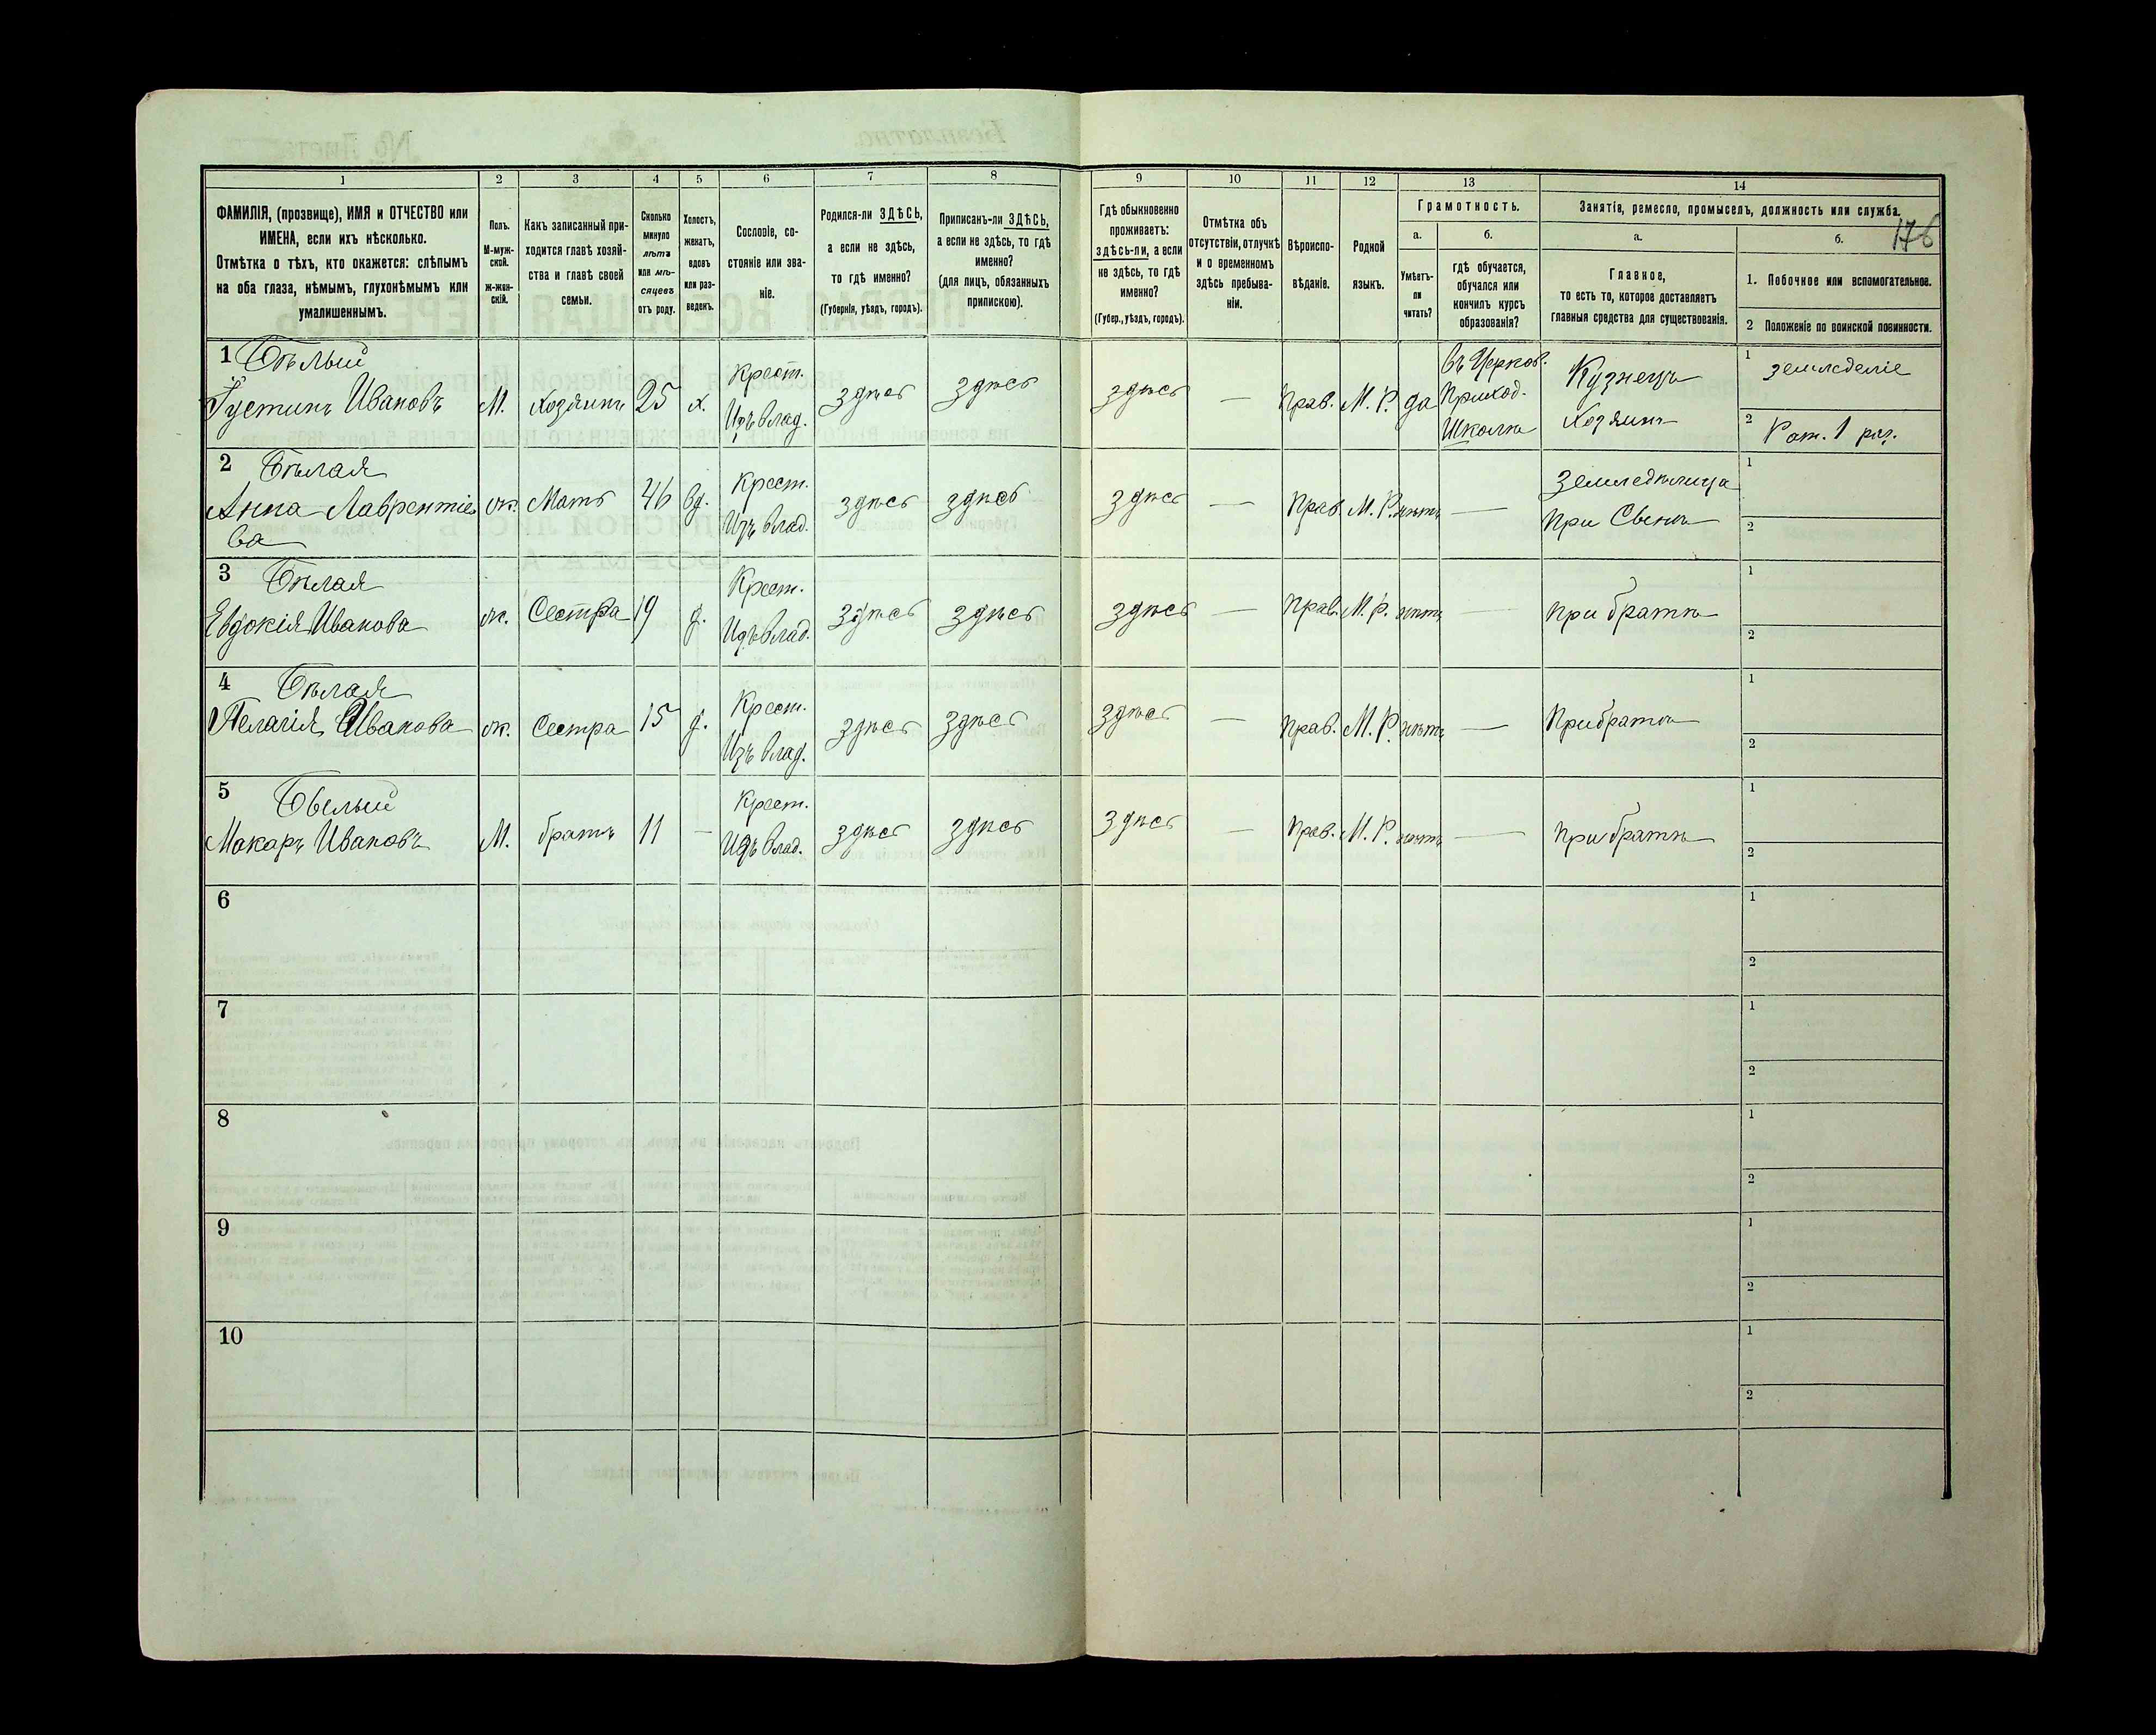 1 2 3 4 5 6 7 8 9 10 11 12 13 14
ФАМИЛІЯ, (прозвище), ИМЯ и ОТЧЕСТВО или
ИМЕНА, если ихъ нѣсколько.
Отмѣтка о тѣхъ, кто окажется: слѣпымъ
на оба глаза, нѣмымъ, глухонѣмымъ или
умалишеннымъ.
Полъ.
М-муж-
ской.
Ж-жен-
скій.
Какъ записанный при-
ходится главѣ хозяй-
ства и главѣ своей
семьи.
Сколько
минуло
лѣтъ
или мѣ-
сяцевъ
отъ роду.
Холостъ,
женатъ,
вдовъ
или раз-
веденъ.
Сословіе, со-
стояніе или зва-
ніе.
Родился-ли ЗДѢСЬ,
а если не здѣсь,
то гдѣ именно?
(Губернія, уѣздъ, городъ).
Приписанъ-ли ЗДѢСЬ,
а если не здѣсь, то гдѣ
именно?
(для лицъ, обязанныхъ
припискою).
Гдѣ обыкновенно
проживаетъ:
здѣсь-ли, а если
не здѣсь, то гдѣ
именно?
(Губер., уѣздъ, городъ).
Отмѣтка объ
отсутствіи, отлучкѣ
и о временномъ
здѣсь пребыва-
ніи.
Вѣроиспо-
вѣданіе.
Родной
языкъ.
Грамотность.
а.
Умѣетъ-
ли
читать?
б.
гдѣ обучается,
обучался или
кончилъ курсъ
образованія?
Занятія, ремесло, промыселъ, должность или служба.
176
а.
Главное,
то есть то, которое доставляетъ
главныя средства для существованія.
б.
1. Побочное или вспомогательное.
2 Положеніе по воинской повинности.
1 Бѣлый
Густинъ Ивановъ М. хозяинъ 25 х. Крест. Изъ влад. здѣсь здѣсь здѣсь — Прав. М. Р. да въ Церков. Приход. Школѣ Кузнецъ Хозяинъ
1 земледеліе
2 Рат. 1 раз.
2 Бѣлая
Анна Лаврентіе
ва ж. Мать 46 вд. Крест. Изъ влад. здѣсь здѣсь здѣсь — Прав. М. Р. нѣтъ — Земледѣлица при
1
2
3 Бѣлая
Евдокія Иванова ж. Сестра 19 д. Крест. Изъ влад. здѣсь здѣсь здѣсь — Прав. М. Р. нѣтъ — при братѣ
1
2
4 Бѣлая
Пелагія Иванова ж. Сестра 15 д. Крест. Изъ влад. здѣсь здѣсь здѣсь — Прав. М. Р. нѣтъ — При братѣ
1
2
5 Бѣлый
Макаръ Ивановъ М. братъ 11 — Крест. Изъ влад. здѣсь здѣсь здѣсь — Прав. М. Р. нѣтъ — при братѣ
1
2
6
1
2
7
1
2
8
1
2
9
1
2
10
1
2